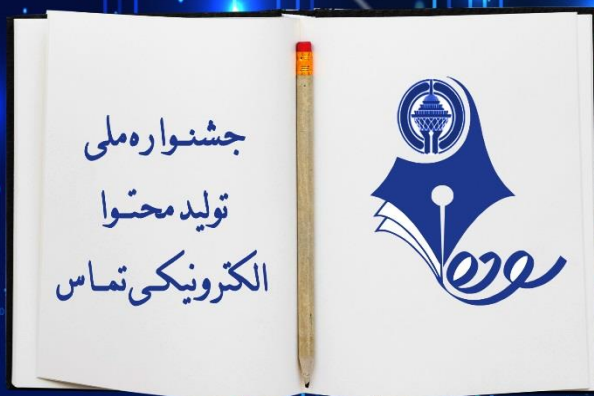 جشنواره ملی
تولید محتوا
الکترونیکی تماس
سوده